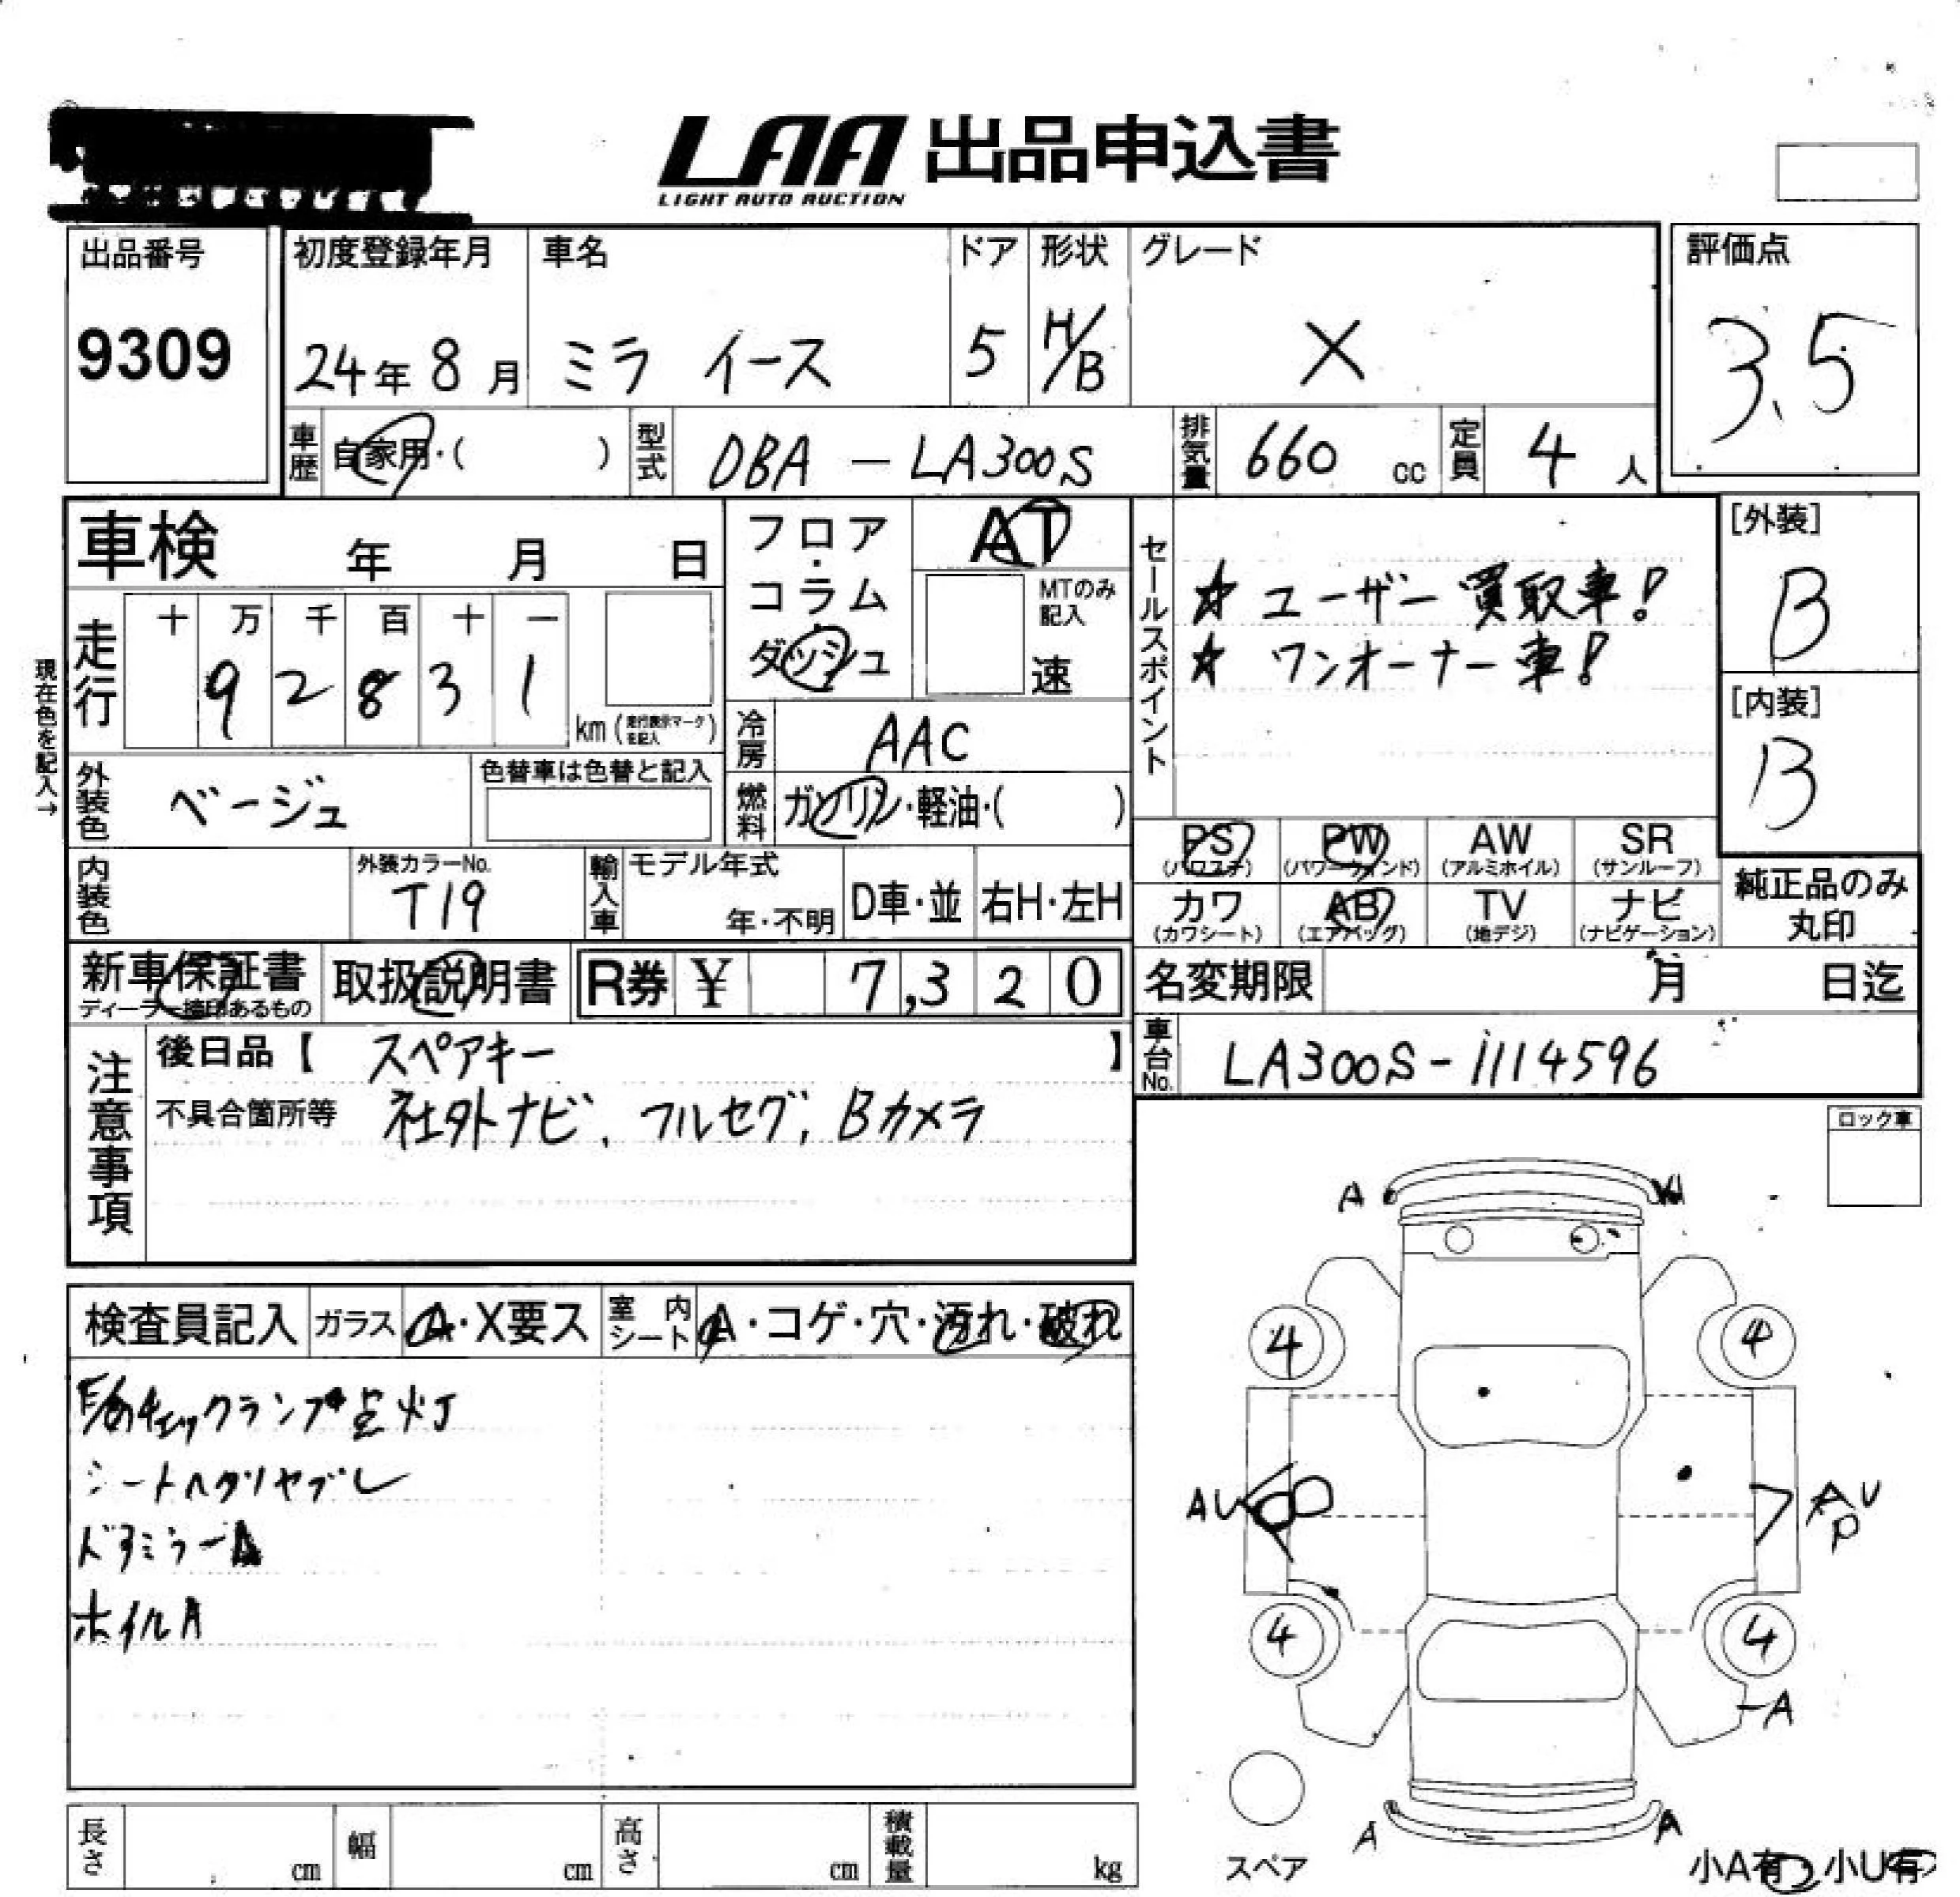 LAA 出品申込書
LIGHT AUTO AUCTION
出品番号
9309
初度登録年月
24年 8月
車名
ミラ イース
ドア
5
形状
H/B
グレード
X
評価点
3.5
車歴 自家用・( )
型式 DBA - LA300S
排気量 660 cc
定員 4 人
車検 年 月 日
走行
十 万 千 百 十 一
9 2 8 3 1
km (走行表示マークを記入)
現在色を記入→
外装色 ベージュ
色替車は色替と記入
内装色
外装カラーNo.
T19
フロア・コラム・ダッシュ
AT
MTのみ記入
速
冷房 AAC
燃料 ガソリン・軽油・( )
輸入車
モデル年式
年・不明
D車・並
右H・左H
セールスポイント
☆ ユーザー買取車!
☆ ワンオーナー車!
[外装]
B
[内装]
B
PS (パワステ)
PW (パワーウィンド)
AW (アルミホイル)
SR (サンルーフ)
カワ (カワシート)
AB (エアバッグ)
TV (地デジ)
ナビ (ナビゲーション)
純正品のみ丸印
新車保証書
ディーラー捺印あるもの
取扱説明書
R券 ¥ 7,320
名変期限 月 日迄
車台No. LA300S-1114596
注意事項
後日品【 スペアキー 】
不具合箇所等 社外ナビ、フルセグ、Bカメラ
ロック車
検査員記入
ガラス A・X要ス
室内シート A・コゲ・穴・汚れ・破れ
チェックランプ点灯
シートヘタリヤブレ
ドアミラーA
ホイルA
A
4
4
AU
AU
P
4
4
A
A
A
スペア
小A有 小U有
長さ cm
幅 cm
高さ cm
積載量 kg